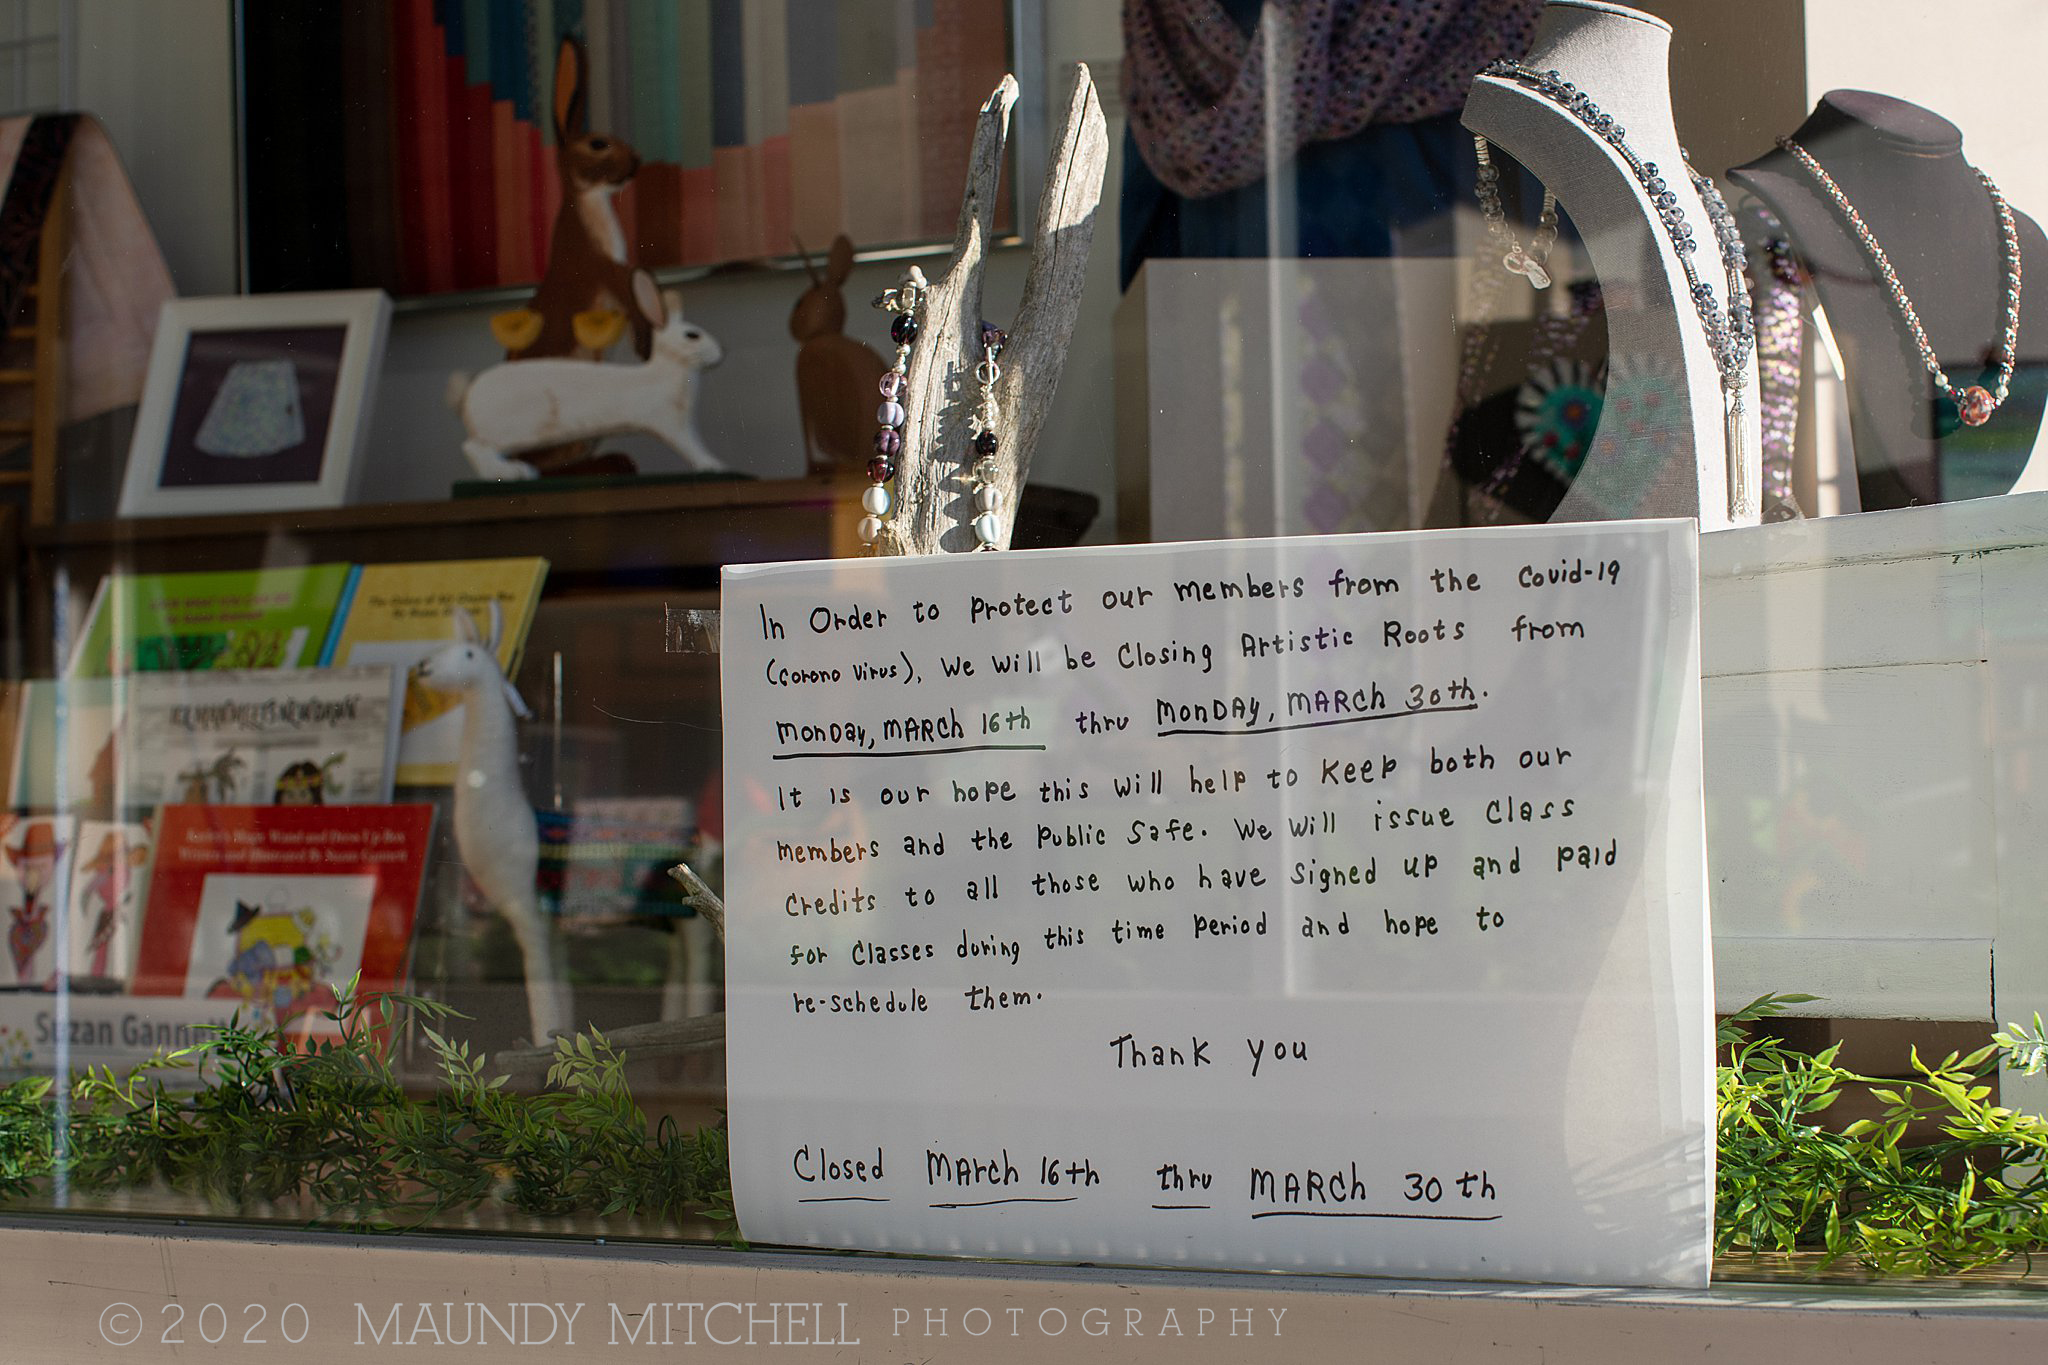 In Order to protect our members from the Covid-19
(corono virus), we will be closing Artistic Roots from
Monday, MARCH 16th thru MONDAY, MARCH 30th.
It is our hope this will help to keep both our
members and the public safe. We will issue class
credits to all those who have signed up and paid
for classes during this time period and hope to
re-schedule them.
Thank you
Closed March 16th thru MARCH 30th
Suzan Ganne
©2020 MAUNDY MITCHELL PHOTOGRAPHY